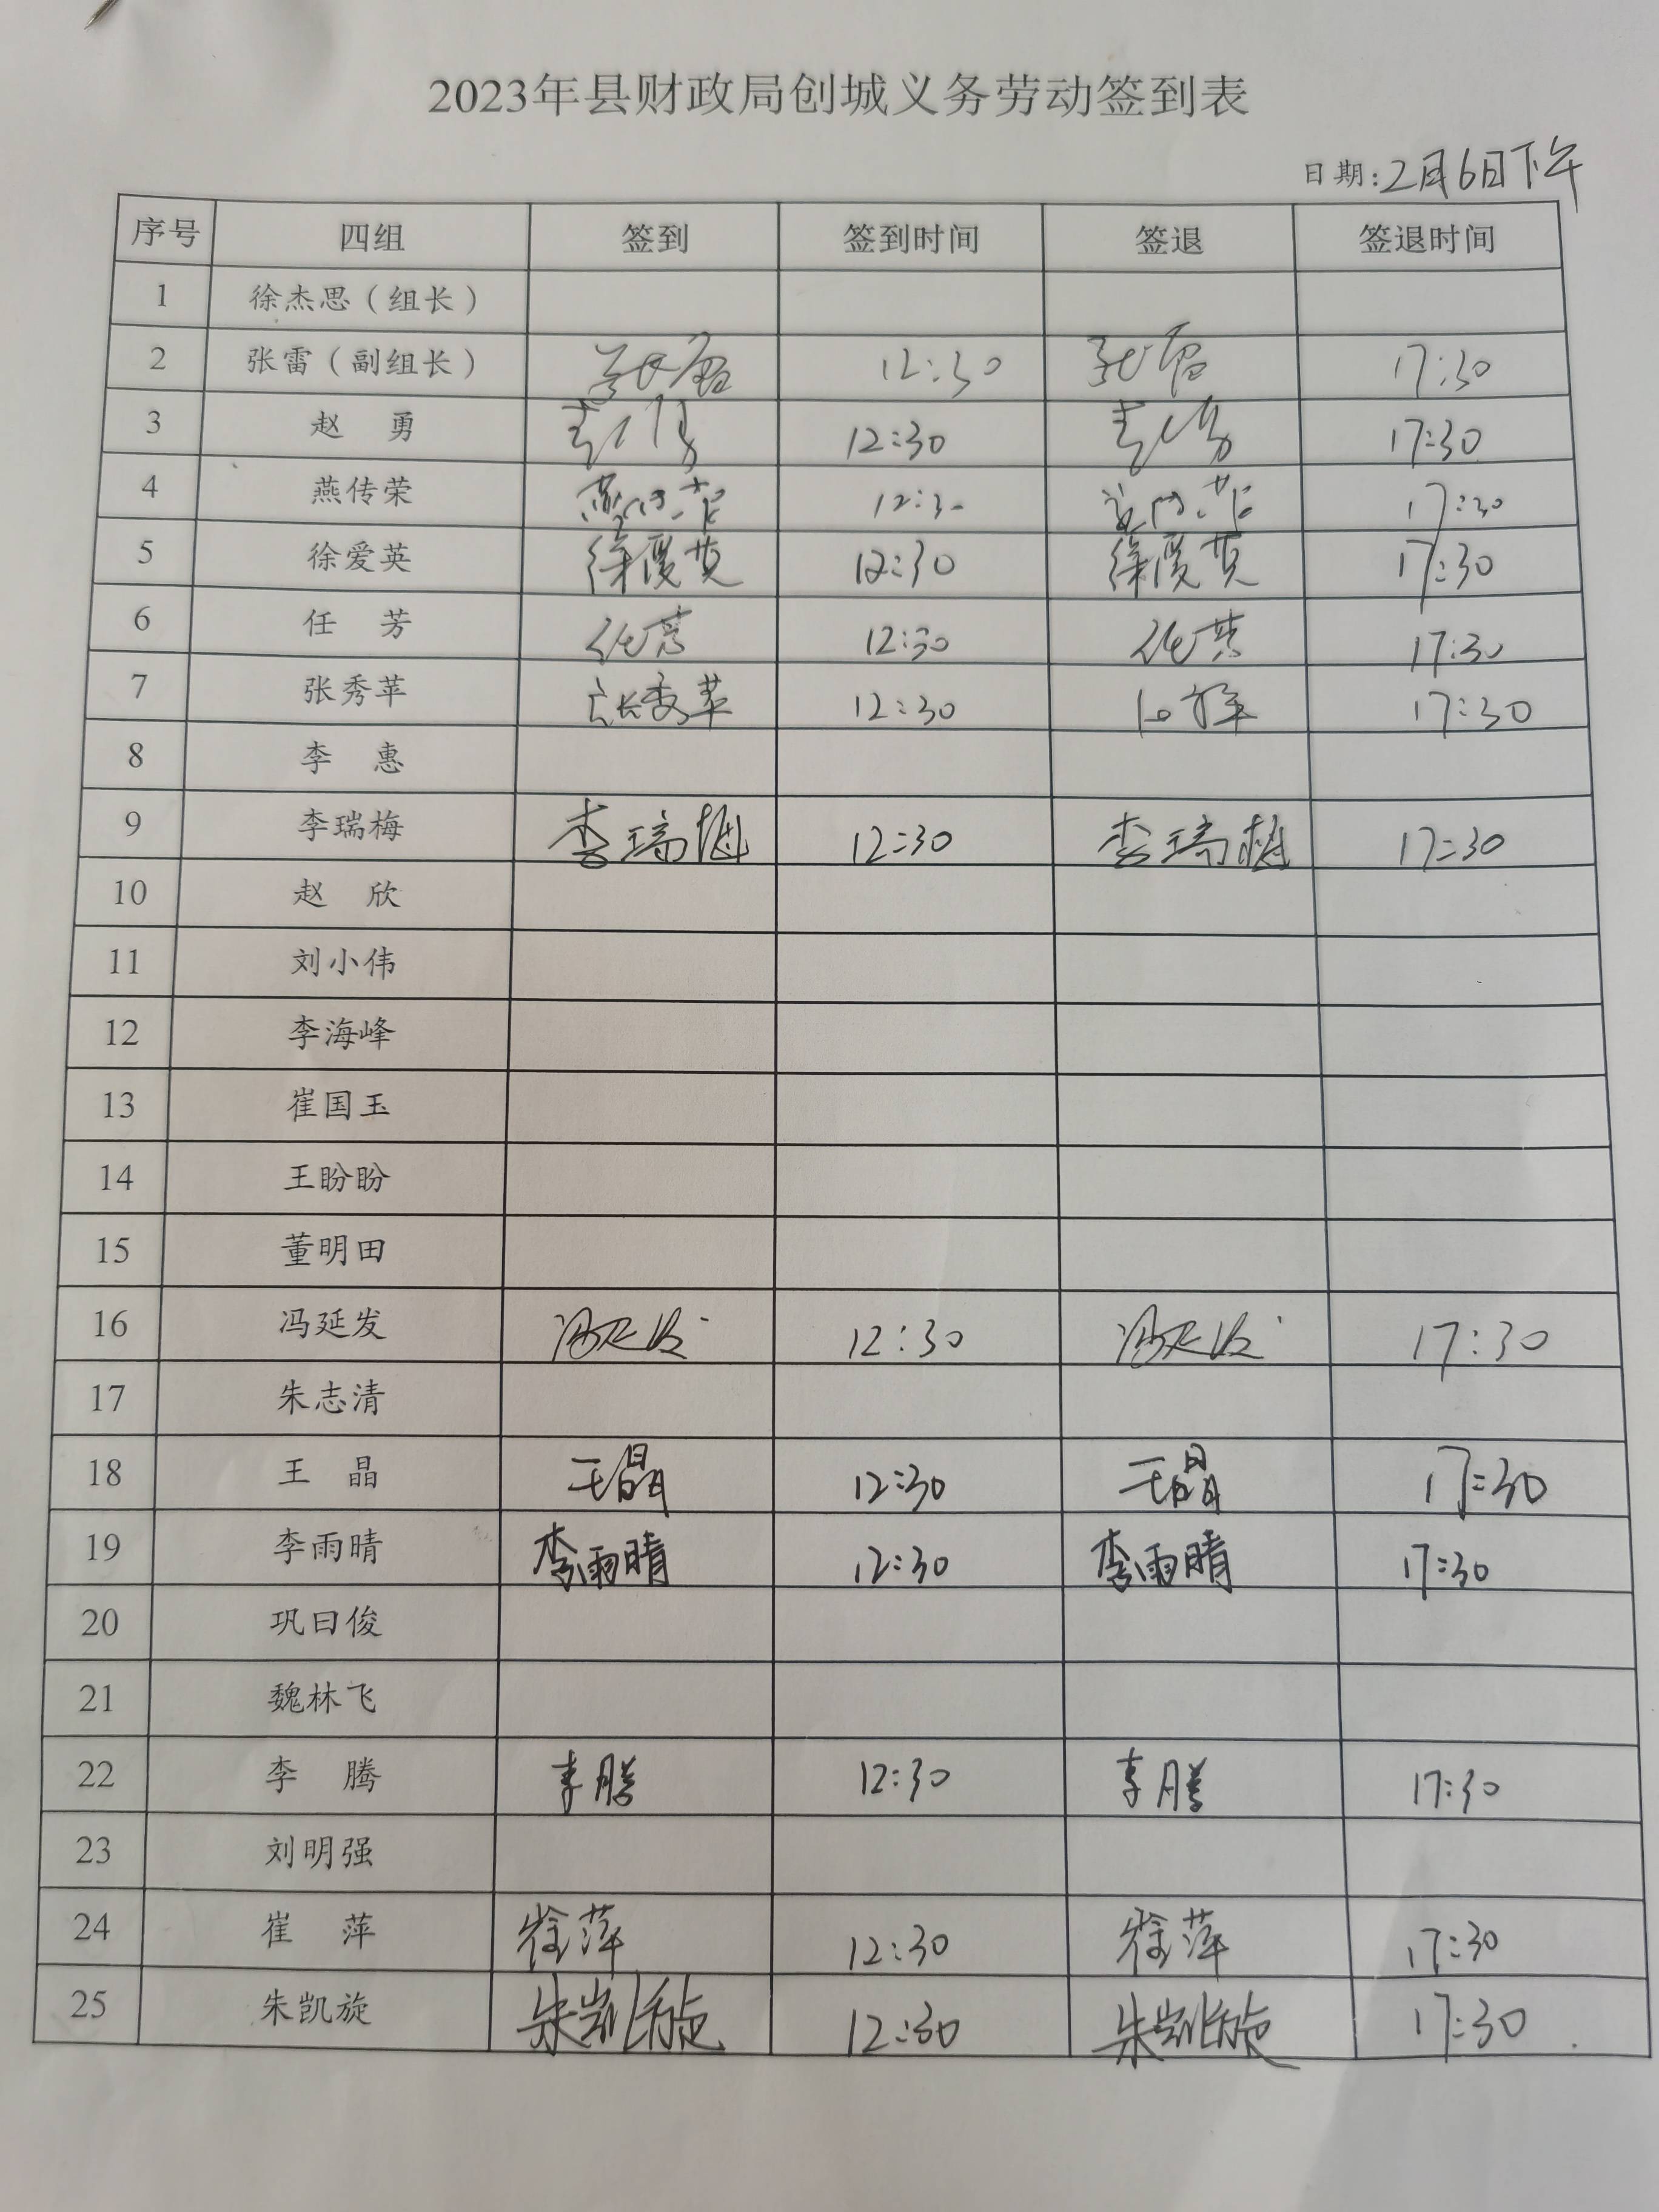 2023年县财政局创城义务劳动签到表
日期:2月6日下午
序号 四组 签到 签到时间 签退 签退时间
1 徐杰思（组长）
2 张雷（副组长） 张雷 12:30 张雷 17:30
3 赵 勇 赵勇 12:30 赵勇 17:30
4 燕传荣 燕传荣 12:30 燕传荣 17:30
5 徐爱英 徐爱英 12:30 徐爱英 17:30
6 任 芳 任芳 12:30 任芳 17:30
7 张秀苹 张秀苹 12:30 17:30
8 李 惠
9 李瑞梅 李瑞梅 12:30 李瑞梅 17:30
10 赵 欣
11 刘小伟
12 李海峰
13 崔国玉
14 王盼盼
15 董明田
16 冯延发 冯延发 12:30 冯延发 17:30
17 朱志清
18 王 晶 王晶 12:30 王晶 17:30
19 李雨晴 李雨晴 12:30 李雨晴 17:30
20 巩曰俊
21 魏林飞
22 李 腾 李腾 12:30 李腾 17:30
23 刘明强
24 崔 萍 崔萍 12:30 崔萍 17:30
25 朱凯旋 朱凯旋 12:30 朱凯旋 17:30